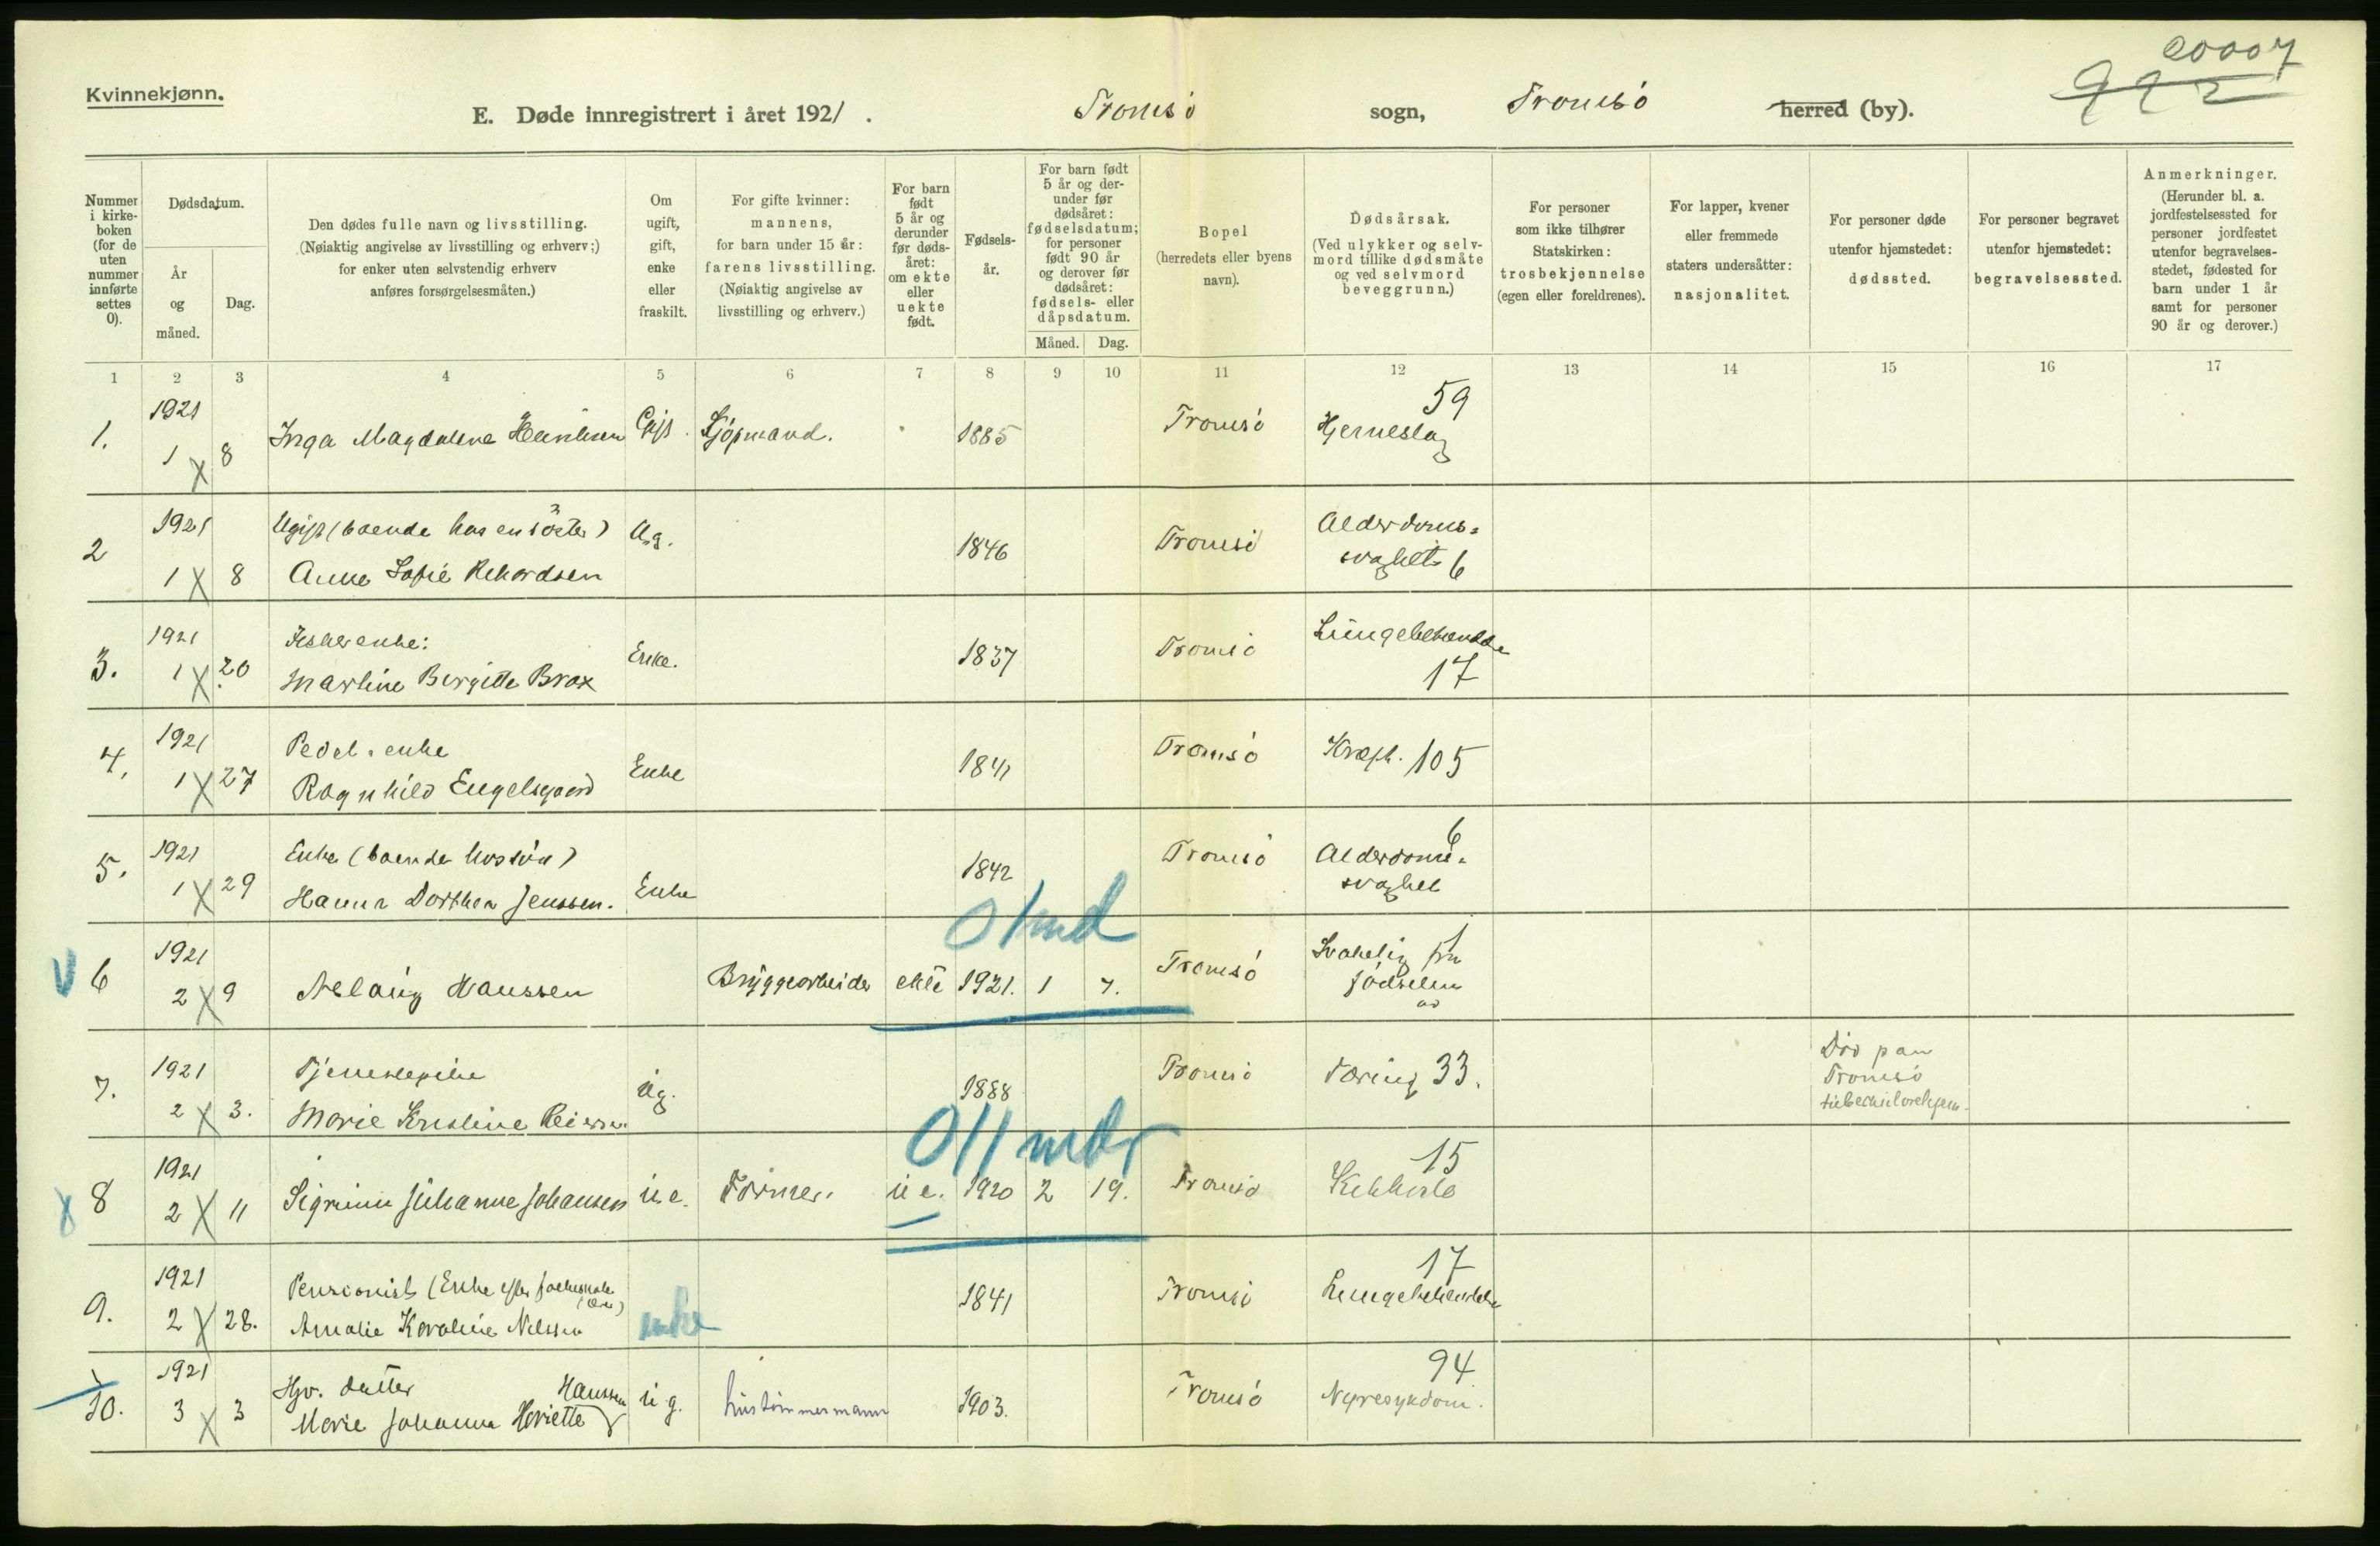 Kvinnekjønn.
E. Døde innregistrert i året 1921.
Tromsø sogn, Tromsø herred (by).
20007
992
Nummer i kirkeboken (for de uten nummer innførte settes 0).
Dødsdatum.
År og måned.
Dag.
Den dødes fulle navn og livsstilling.
(Nøiaktig angivelse av livsstilling og erhverv;)
for enker uten selvstendig erhverv
anføres forsørgelsesmåten.)
Om ugift, gift, enke eller fraskilt.
For gifte kvinner:
mannens,
for barn under 15 år:
farens livsstilling.
(Nøiaktig angivelse av
livsstilling og erhverv.)
For barn født 5 år og derunder før dødsåret: om ekte eller uekte født.
Fødselsår.
For barn født 5 år og derunder før dødsåret: fødselsdatum; for personer født 90 år og derover før dødsåret: fødsels- eller dåpsdatum.
Måned.
Dag.
Bopel
(herredets eller byens
navn).
Dødsårsak.
(Ved ulykker og selvmord tillike dødsmåte og ved selvmord beveggrunn.)
For personer
som ikke tilhører
Statskirken:
trosbekjennelse
(egen eller foreldrenes).
For lapper, kvener
eller fremmede
staters undersåtter:
nasjonalitet.
For personer døde
utenfor hjemstedet:
dødssted.
For personer begravet
utenfor hjemstedet:
begravelsessted.
Anmerkninger.
(Herunder bl. a.
jordfestelsessted for
personer jordfestet
utenfor begravelsesstedet, fødested for
barn under 1 år
samt for personer
90 år og derover.)
1 2 3 4 5 6 7 8 9 10 11 12 13 14 15 16 17
1. 1921 1 8 Inga Magdalene Gift. Kjøpmand. 1885 Tromsø Hjerneslag 59
2 1921 1 8 Ugift (boende hos en søster)
Anne Sofie Rikardsen Ug. 1846 Tromsø Alderdoms-
svaghet 6
3. 1921 1 20 Fiskerenke:
Martine Bergitte Brox Enke. 1837 Tromsø Lungebetændelse
17
4. 1921 1 27 Pedel-enke
Ragnhild Engelsgaard Enke 1841 Tromsø Kræft. 105
5. 1921 1 29 Enke (boende hos søn)
Hanna Dorthea Jenssen. Enke 1842 Tromsø Alderdoms-
svaghet 6
0 1 md
6 1921 2 9 Aslaug Hanssen Bryggearbeider ekte 1921. 1 7. Tromsø Svakelig fra
fødselen
av 1
7. 1921 2 3. Tjenestepike
Marie Kristine ug. 1888 Tromsø Tæring 33. Død paa
Tromsø
tuberkulosehjem.
0 11 mdr
8 1921 2 11 Sigrunn Johanne Johansen u e. Tømmer. u e. 1920 2 19. Tromsø Kikhoste 15
9. 1921 2 28. Pensionist (Enke efter
Amalie Karoline Nilssen enke 1841 Tromsø Lungebetændelse 17
10. 1921 3 3 Hjv. datter
Marie Johanna Hariette Hanssen ug. hustømmermann 1903. Tromsø Nyresykdom. 94